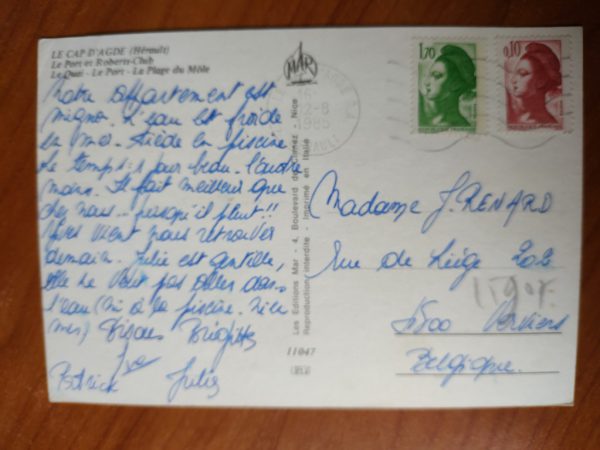 LE CAP D'AGDE (Hérault)
Le Port et Roberts-Club
Le Quai - Le Port - La Plage du Môle
Notre appartement est
mignon. L'eau est froide
en mer. Tiède en piscine
Le temps: 1 jour beau. l'autre
moins. Il fait meilleur que
chez nous... puisqu'il pleut!!
vient nous retrouver
demain. Julie est gentille,
elle ne veut pas aller dans
l'eau (ni à la piscine. ni en
mer) Bisous Brigitte
Patrick Julie
MAR
1985
HERAULT
1,70
REPUBLIQUE FRANÇAISE
0,10
REPUBLIQUE FRANÇAISE
Les Editions Mar - 4, Boulevard de Cimiez, Nice
Reproductions interdite - Imprimé en Italie
11047
Madame J. RENARD
rue de Liège
Verviers
Belgique.